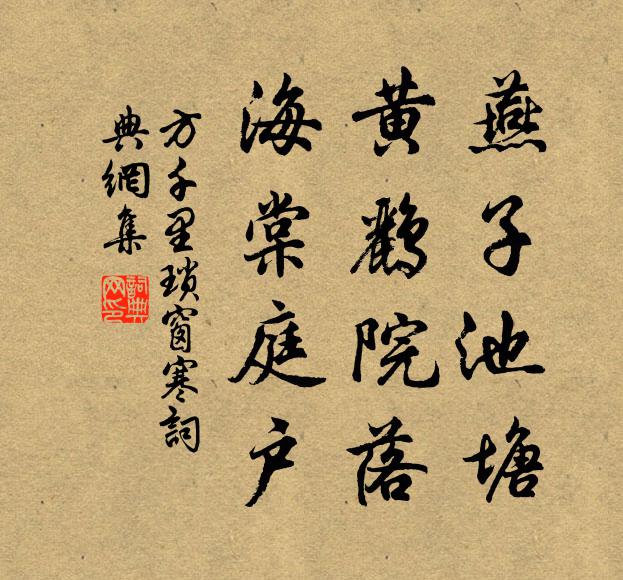 燕子池塘
黃鸝院落
海棠庭户
方千里瑣窗寒詞
典網集
詞典
网印